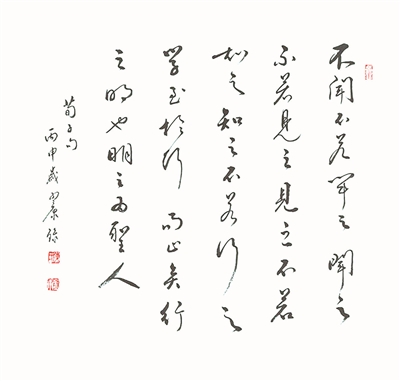 不聞不若聞之聞之
不若見之見之不若
知之知之不若行之
學至於行而止矣行
之明也明之為聖人
荀子句
丙申歲康